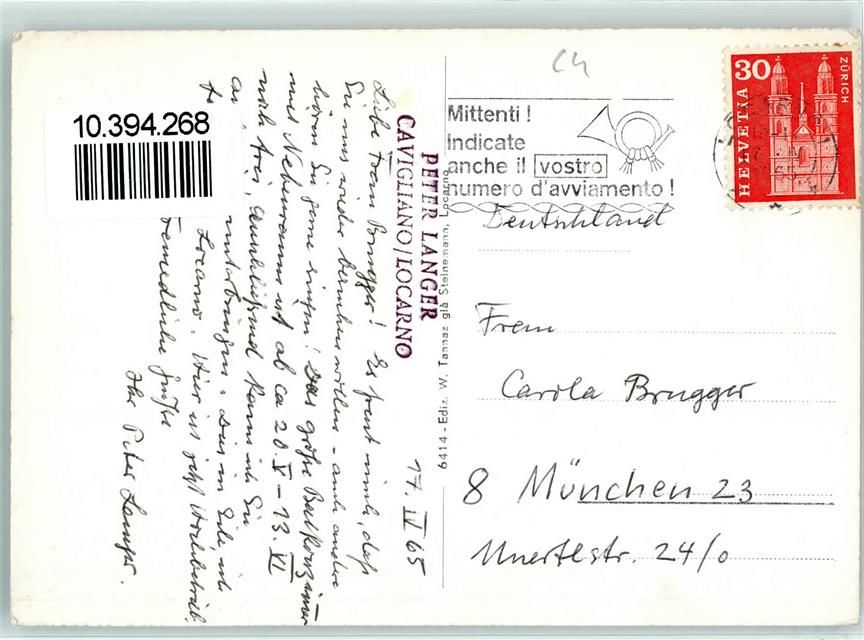 C4
10.394.268
Mittenti !
Indicate
anche il vostro
numero d'avviamento !
30
HELVETIA
ZÜRICH
Deutschland
Frau
Carola Brugger
8 München 23
Unertlstr. 24/0
6414 - Ediz. W. Tannaz già Steinemann, Locarno
PETER LANGER
CAVIGLIANO/LOCARNO
17. IV 65
Liebe Frau Brugger! Es freut mich, daß
Sie uns wieder besuchen wollen - auch andere
hören Sie gerne singen! Das große Balkonzimmer
und Nebenraum ist ab ca 20. V - 13. VI
noch frei, anschließend kann ich Sie
unterbringen. Dies in Eile, ich
Locarno. Hier ist jetzt Hochbetrieb.
Freundliche Grüße
Ihr Peter Langer.